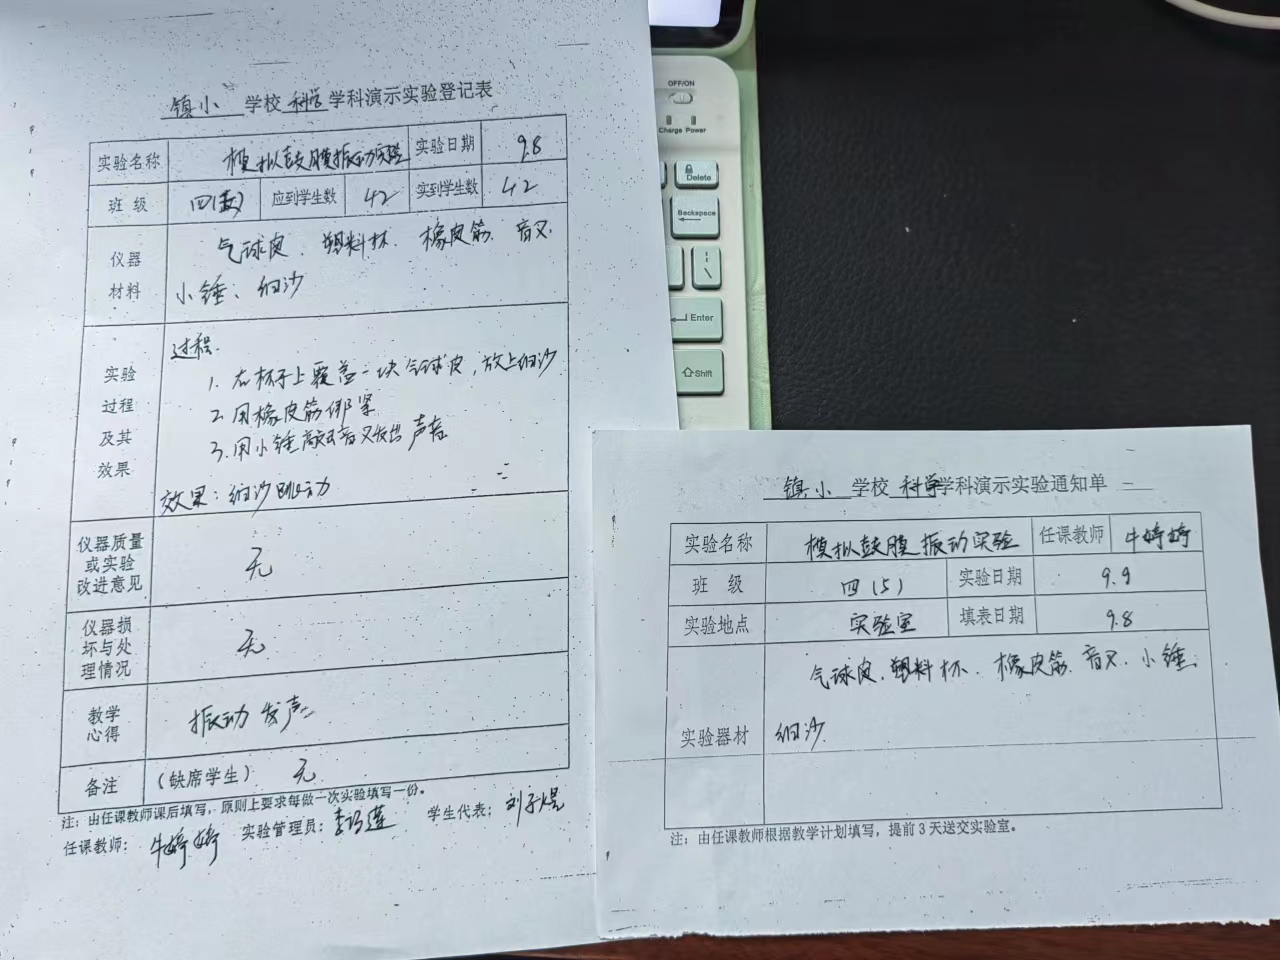 镇小 学校 科学 学科演示实验登记表
实验名称 模拟鼓膜振动实验 实验日期 9.8
班 级 四(五) 应到学生数 42 实到学生数 42
仪器
材料
气球皮、塑料杯、橡皮筋、音叉、
小锤、细沙
实验
过程
及其
效果
过程:
1. 在杯子上覆盖一块气球皮,放上细沙
2. 用橡皮筋绑紧
3. 用小锤敲击音叉发出声音
效果:细沙跳动
仪器质量
或实验
改进意见
无
仪器损
坏与处
理情况
无
教学
心得
振动发声
备注 (缺席学生) 无
注:由任课教师课后填写,原则上要求每做一次实验填写一份。
任课教师: 牛婷婷 实验管理员: 学生代表:
OFF/ON
Charge Power
Delete
Backspace
Enter
Shift
镇小 学校 科学 学科演示实验通知单
实验名称 模拟鼓膜振动实验 任课教师 牛婷婷
班 级 四(5) 实验日期 9.9
实验地点 实验室 填表日期 9.8
实验器材
气球皮、塑料杯、橡皮筋、音叉、小锤、
细沙
注:由任课教师根据教学计划填写,提前3天送交实验室。